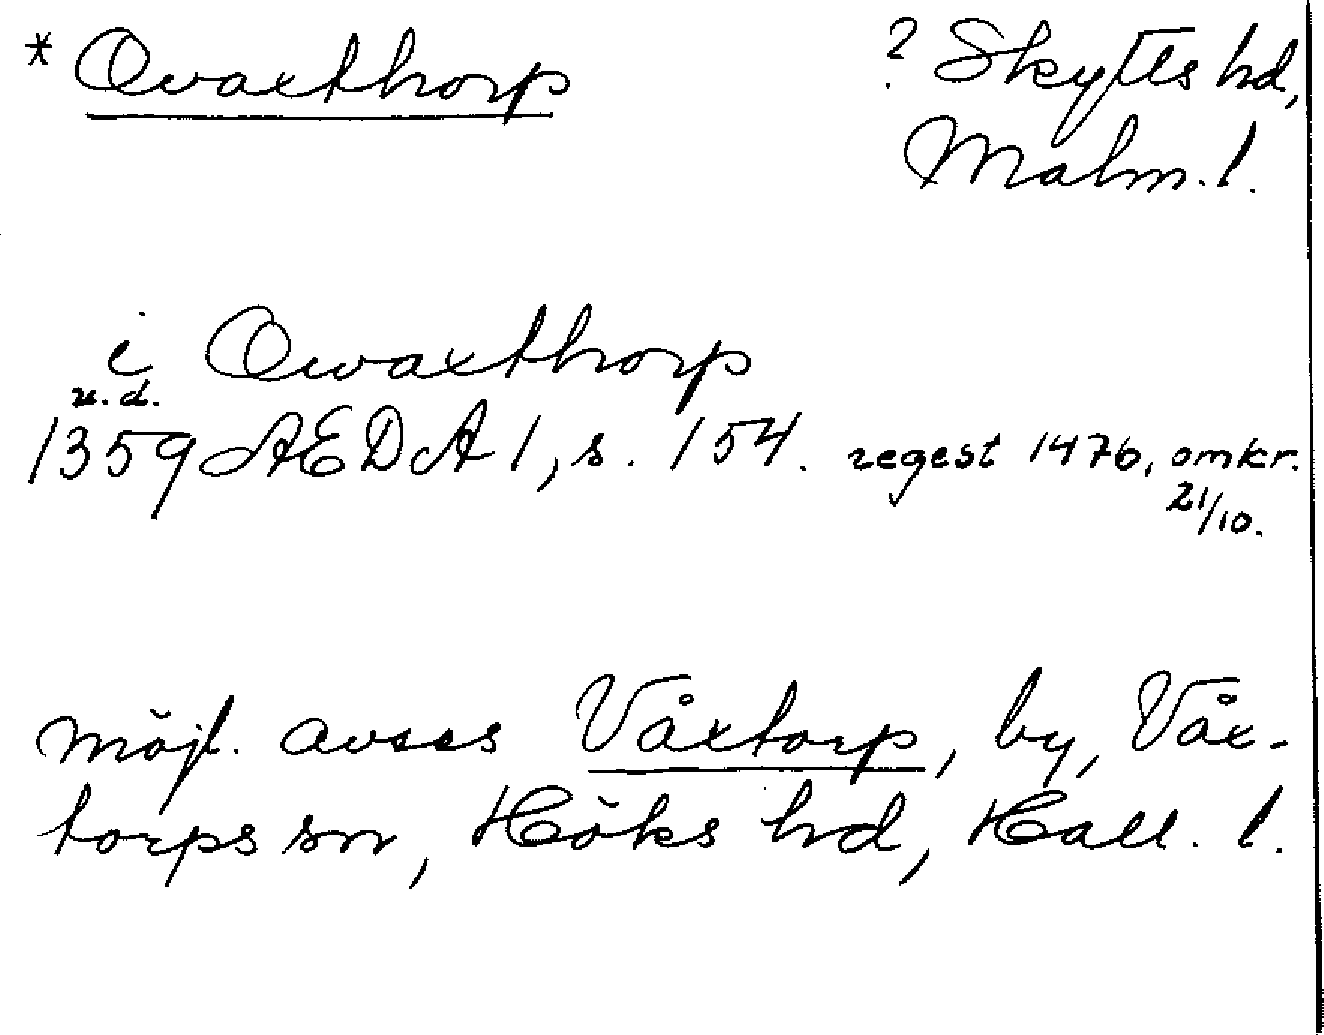 * Ovaxthorp ? Skytts hd,
Malm. l.
i Owaxthorp
u. d.
1359 AEDA 1, s. 154. regest 1476, omkr.
21/10.
möjl. avses Våxtorp, by, Våx-
torps sn, Höks hd, Hall. l.